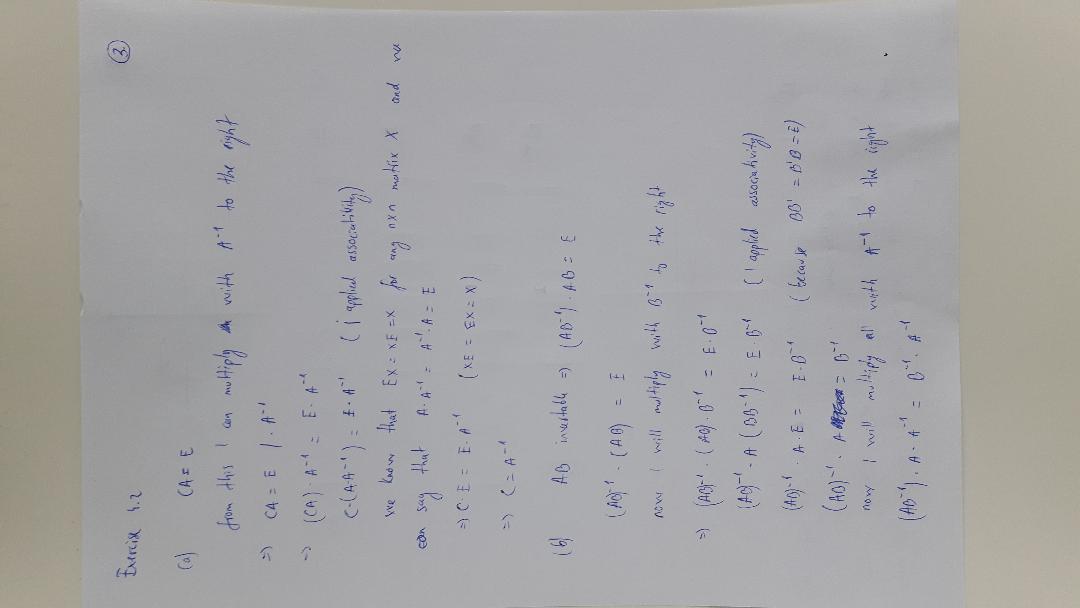 3.
Exercise 4.2
(a) CA = E
from this I can multiply with A⁻¹ to the right
=) CA = E | · A⁻¹
=) (CA) · A⁻¹ = E · A⁻¹
C·(A·A⁻¹) = E · A⁻¹ (I applied associativity)
we know that EX = XE = X for any nxn matrix X and we
can say that A·A⁻¹ = A⁻¹·A = E
=) C·E = E·A⁻¹ (XE = EX = X)
=) C = A⁻¹
(b) AB invertable =) (AB⁻¹)·AB = E
(AB)⁻¹ · (AB) = E
now I will multiply with B⁻¹ to the right
=) (AB)⁻¹ · (AB) · B⁻¹ = E·B⁻¹
(AB)⁻¹ · A (BB⁻¹) = E·B⁻¹ (I applied associativity)
(AB)⁻¹ · A·E = E·B⁻¹ (because BB' = B'B = E)
(AB)⁻¹ · A = B⁻¹
now I will multiply all with A⁻¹ to the right
(AB⁻¹)·A·A⁻¹ = B⁻¹·A⁻¹